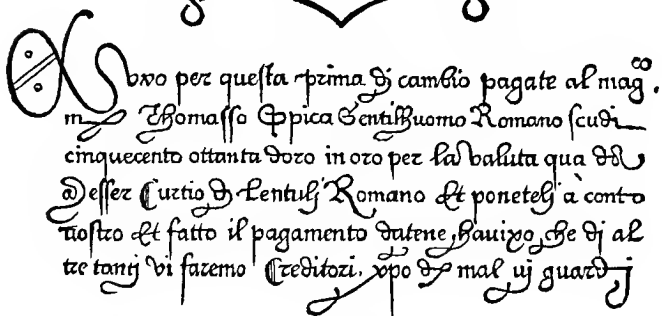 per questa prima dj cambio pagate al mag.co
m Thomasso Eppica Gentilhuomo Romano scudi
cinquecento ottanta doro in oro per la valuta qua dal
Messer Curtio dj Lentulj Romano Et ponetelj à conto
nostro Et fatto il pagamento datene, havixo, che dj al
tre tantj vi faremo Creditori. xpo de mal vj guardj